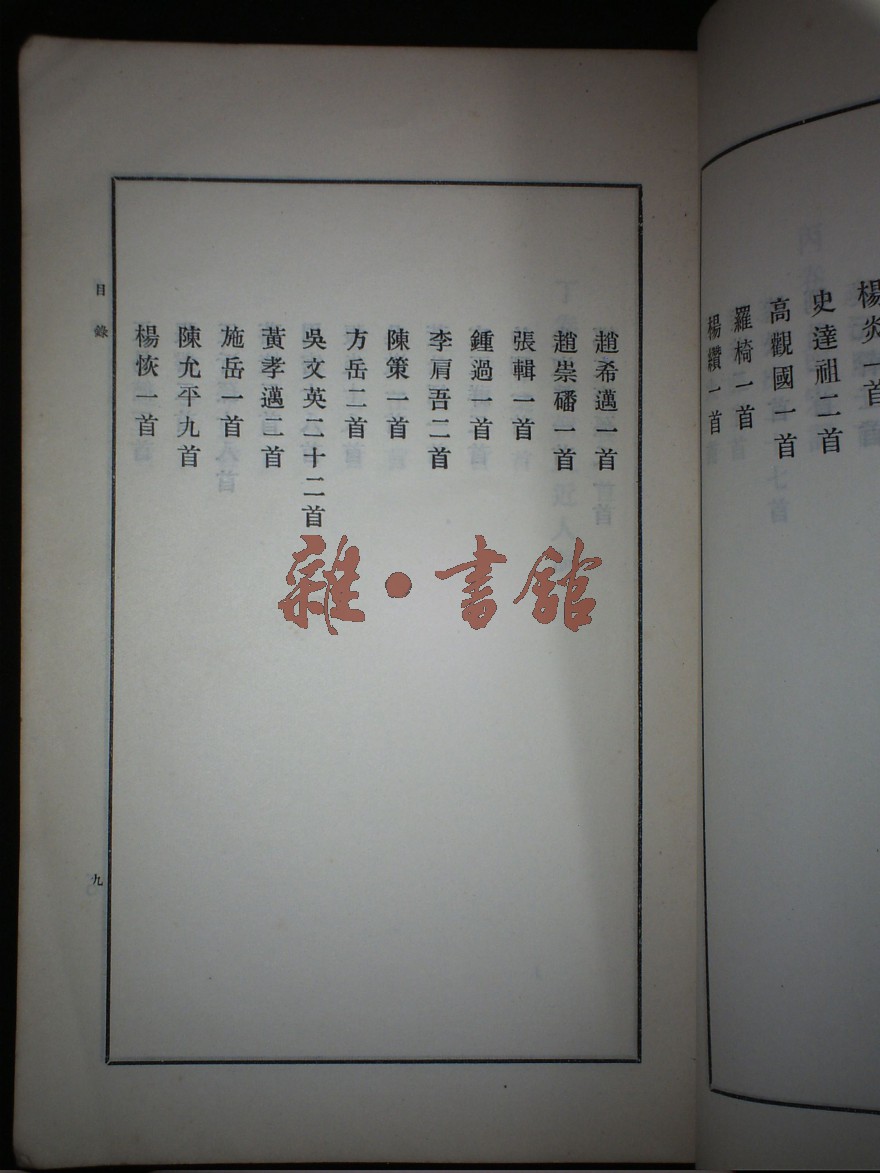 楊炎一首
史達祖二首
高觀國一首
羅椅一首
楊纘一首
趙希邁一首
趙崇磻一首
張輯一首
鍾過一首
李肩吾二首
陳策一首
方岳二首
吳文英二十二首
黃孝邁二首
施岳一首
陳允平九首
楊恢一首
目錄
九
雜·書館